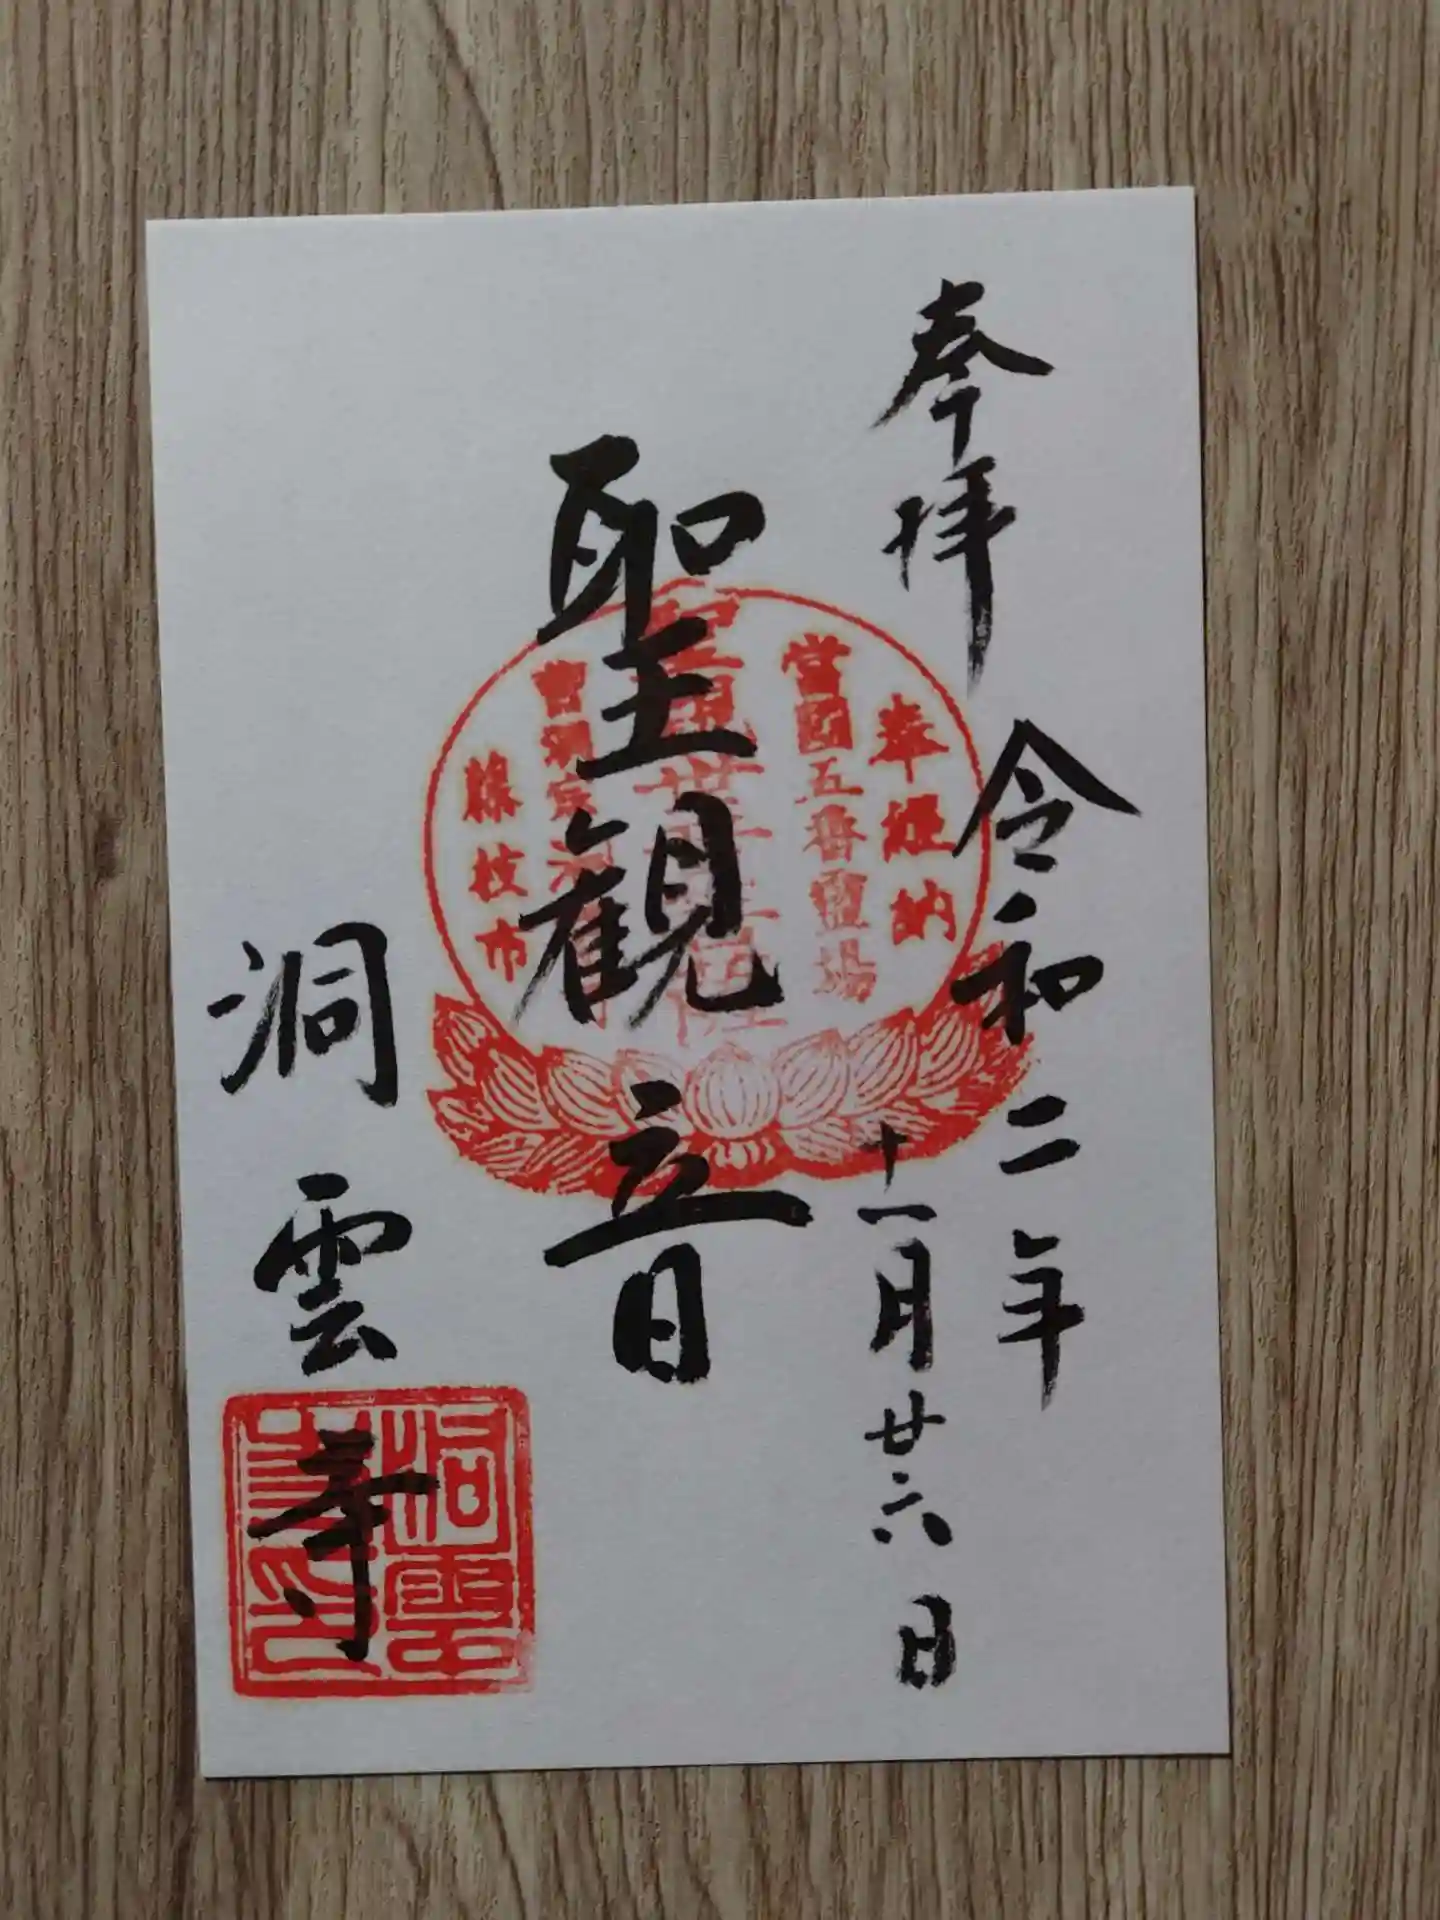 奉拝
令和二年
十一月廿六日
聖観音
洞雲寺
奉経納
當國五番霊場
聖観世音菩薩
藤枝市
洞雲寺印